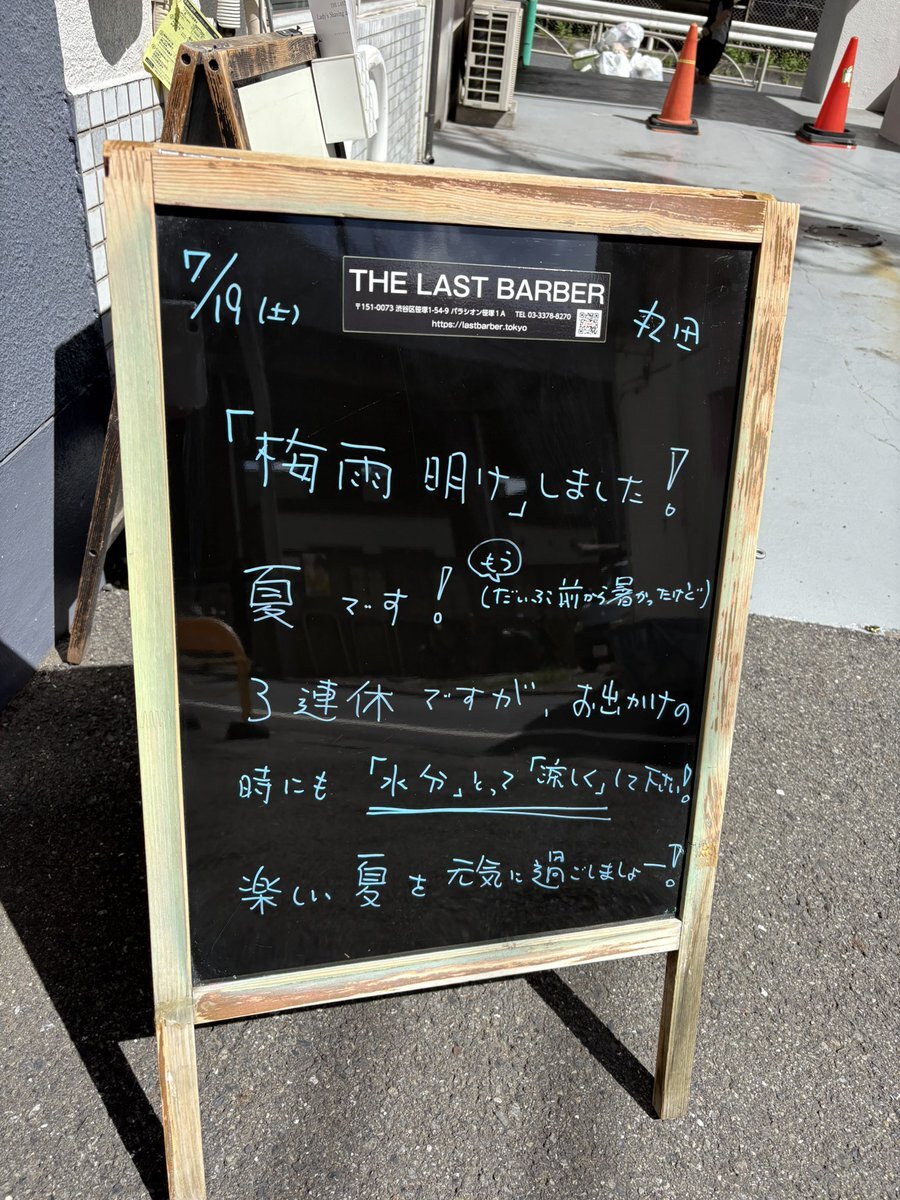 THE LAST BARBER
〒151-0073 渋谷区笹塚1-54-9 パラシオン笹塚1A TEL 03-3378-8270
https://lastbarber.tokyo
7/19(土)
丸田
「梅雨明け」しました!
夏です! もう(だいぶ前から暑かったけど)
3連休ですが、お出かけの
時にも「水分」とって「涼しく」して下さい!
楽しい夏を元気に過ごしましょー!